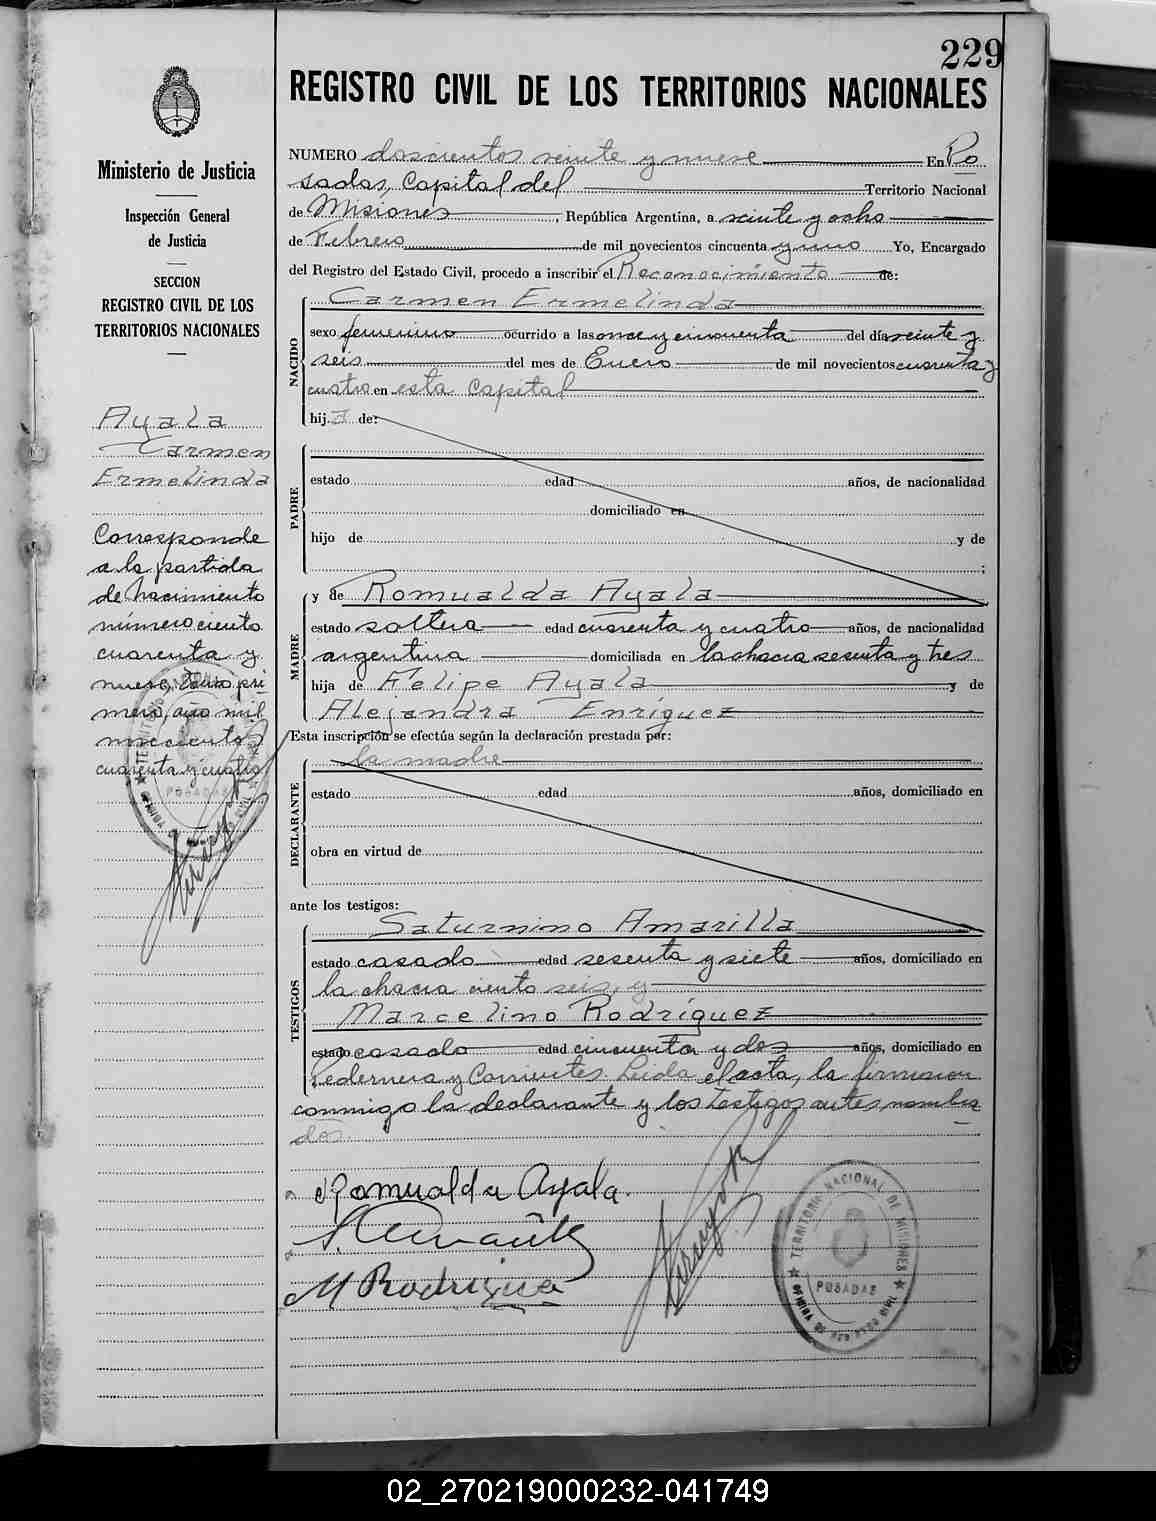 229
REGISTRO CIVIL DE LOS TERRITORIOS NACIONALES
Ministerio de Justicia
Inspección General
de Justicia
SECCION
REGISTRO CIVIL DE LOS
TERRITORIOS NACIONALES
Ayala
Carmen
Ermelinda
Corresponde
a la partida
de Nacimiento
número ciento
cuarenta y
nueve, tomo pri-
mero, año mil
novecientos
cuarenta y cuatro
NUMERO doscientos veinte y nueve En Po
sadas, Capital del Territorio Nacional
de Misiones, República Argentina, a veinte y ocho
de Febrero de mil novecientos cincuenta y uno Yo, Encargado
del Registro del Estado Civil, procedo a inscribir el Reconocimiento de:
NACIDO
Carmen Ermelinda
sexo femenino ocurrido a las once y cincuenta del día veinte y
seis del mes de Enero de mil novecientos cuarenta y
cuatro en esta Capital
hij a de:
PADRE
estado edad años, de nacionalidad
domiciliado en
hijo de y de
;
MADRE
y de Romualda Ayala
estado soltera edad cuarenta y cuatro años, de nacionalidad
argentina domiciliada en la chacra sesenta y tres
hija de Felipe Ayala y de
Alejandra Enriquez
Esta inscripción se efectúa según la declaración prestada por:
DECLARANTE
la madre
estado edad años, domiciliado en
obra en virtud de
ante los testigos:
TESTIGOS
Saturnino Amarilla
estado casado edad sesenta y siete años, domiciliado en
la chacra ciento seis, y
Marcelino Rodríguez
estado casado edad cincuenta y dos años, domiciliado en
Pedernera y Corrientes. Leida el acta, la firmaron
conmigo la declarante y los testigos antes nombra
dos.
Romualda Ayala.
M Rodrigue
TERRITORIO NACIONAL DE MISIONES
POSADAS
POSADAS
02_270219000232-041749